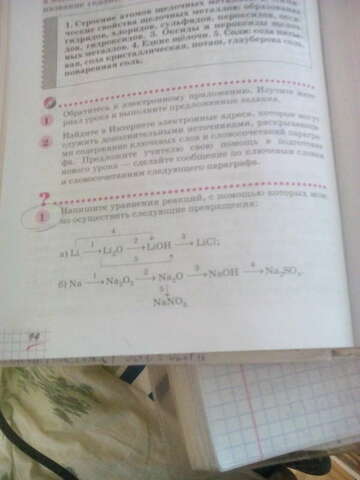 1. Строение атомов щелочных металлов.
ческие свойства щелочных металлов: образование
гидридов, хлоридов, сульфидов, пероксидов, окси-
дов, гидроксидов. 3. Оксиды и пероксиды щелоч-
ных металлов. 4. Едкие щёлочи. 5. Соли: сода питье-
вая, сода кристаллическая, поташ, глауберова соль,
поваренная соль.
1 Обратитесь к электронному приложению. Изучите мате-
риал урока и выполните предложенные задания.
2 Найдите в Интернете электронные адреса, которые могут
служить дополнительными источниками, раскрывающи-
ми содержание ключевых слов и словосочетаний парагра-
фа. Предложите учителю свою помощь в подготовке
нового урока — сделайте сообщение по ключевым словам
и словосочетаниям следующего параграфа.
?
1 Напишите уравнения реакций, с помощью которых мож-
но осуществить следующие превращения:
4
а) Li 1→ Li₂O 2→ LiOH 3→ LiCl;
5
б) Na 1→ Na₂O₂ 2→ Na₂O 3→ NaOH 4→ Na₂SO₄.
5↓
NaNO₃